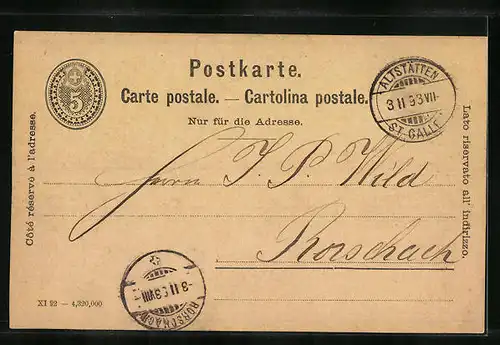 5
Postkarte.
Carte postale. — Cartolina postale.
Nur für die Adresse.
ALTSTÄTTEN
3 II 93 VII-
ST. GALLE
Côté réservé à l'adresse.
Lato riservato all' indirizzo.
Herrn J. P. Wild
Rorschach
-3 II 93 VIII
RORSCHACH
XI 92 — 4,320,000